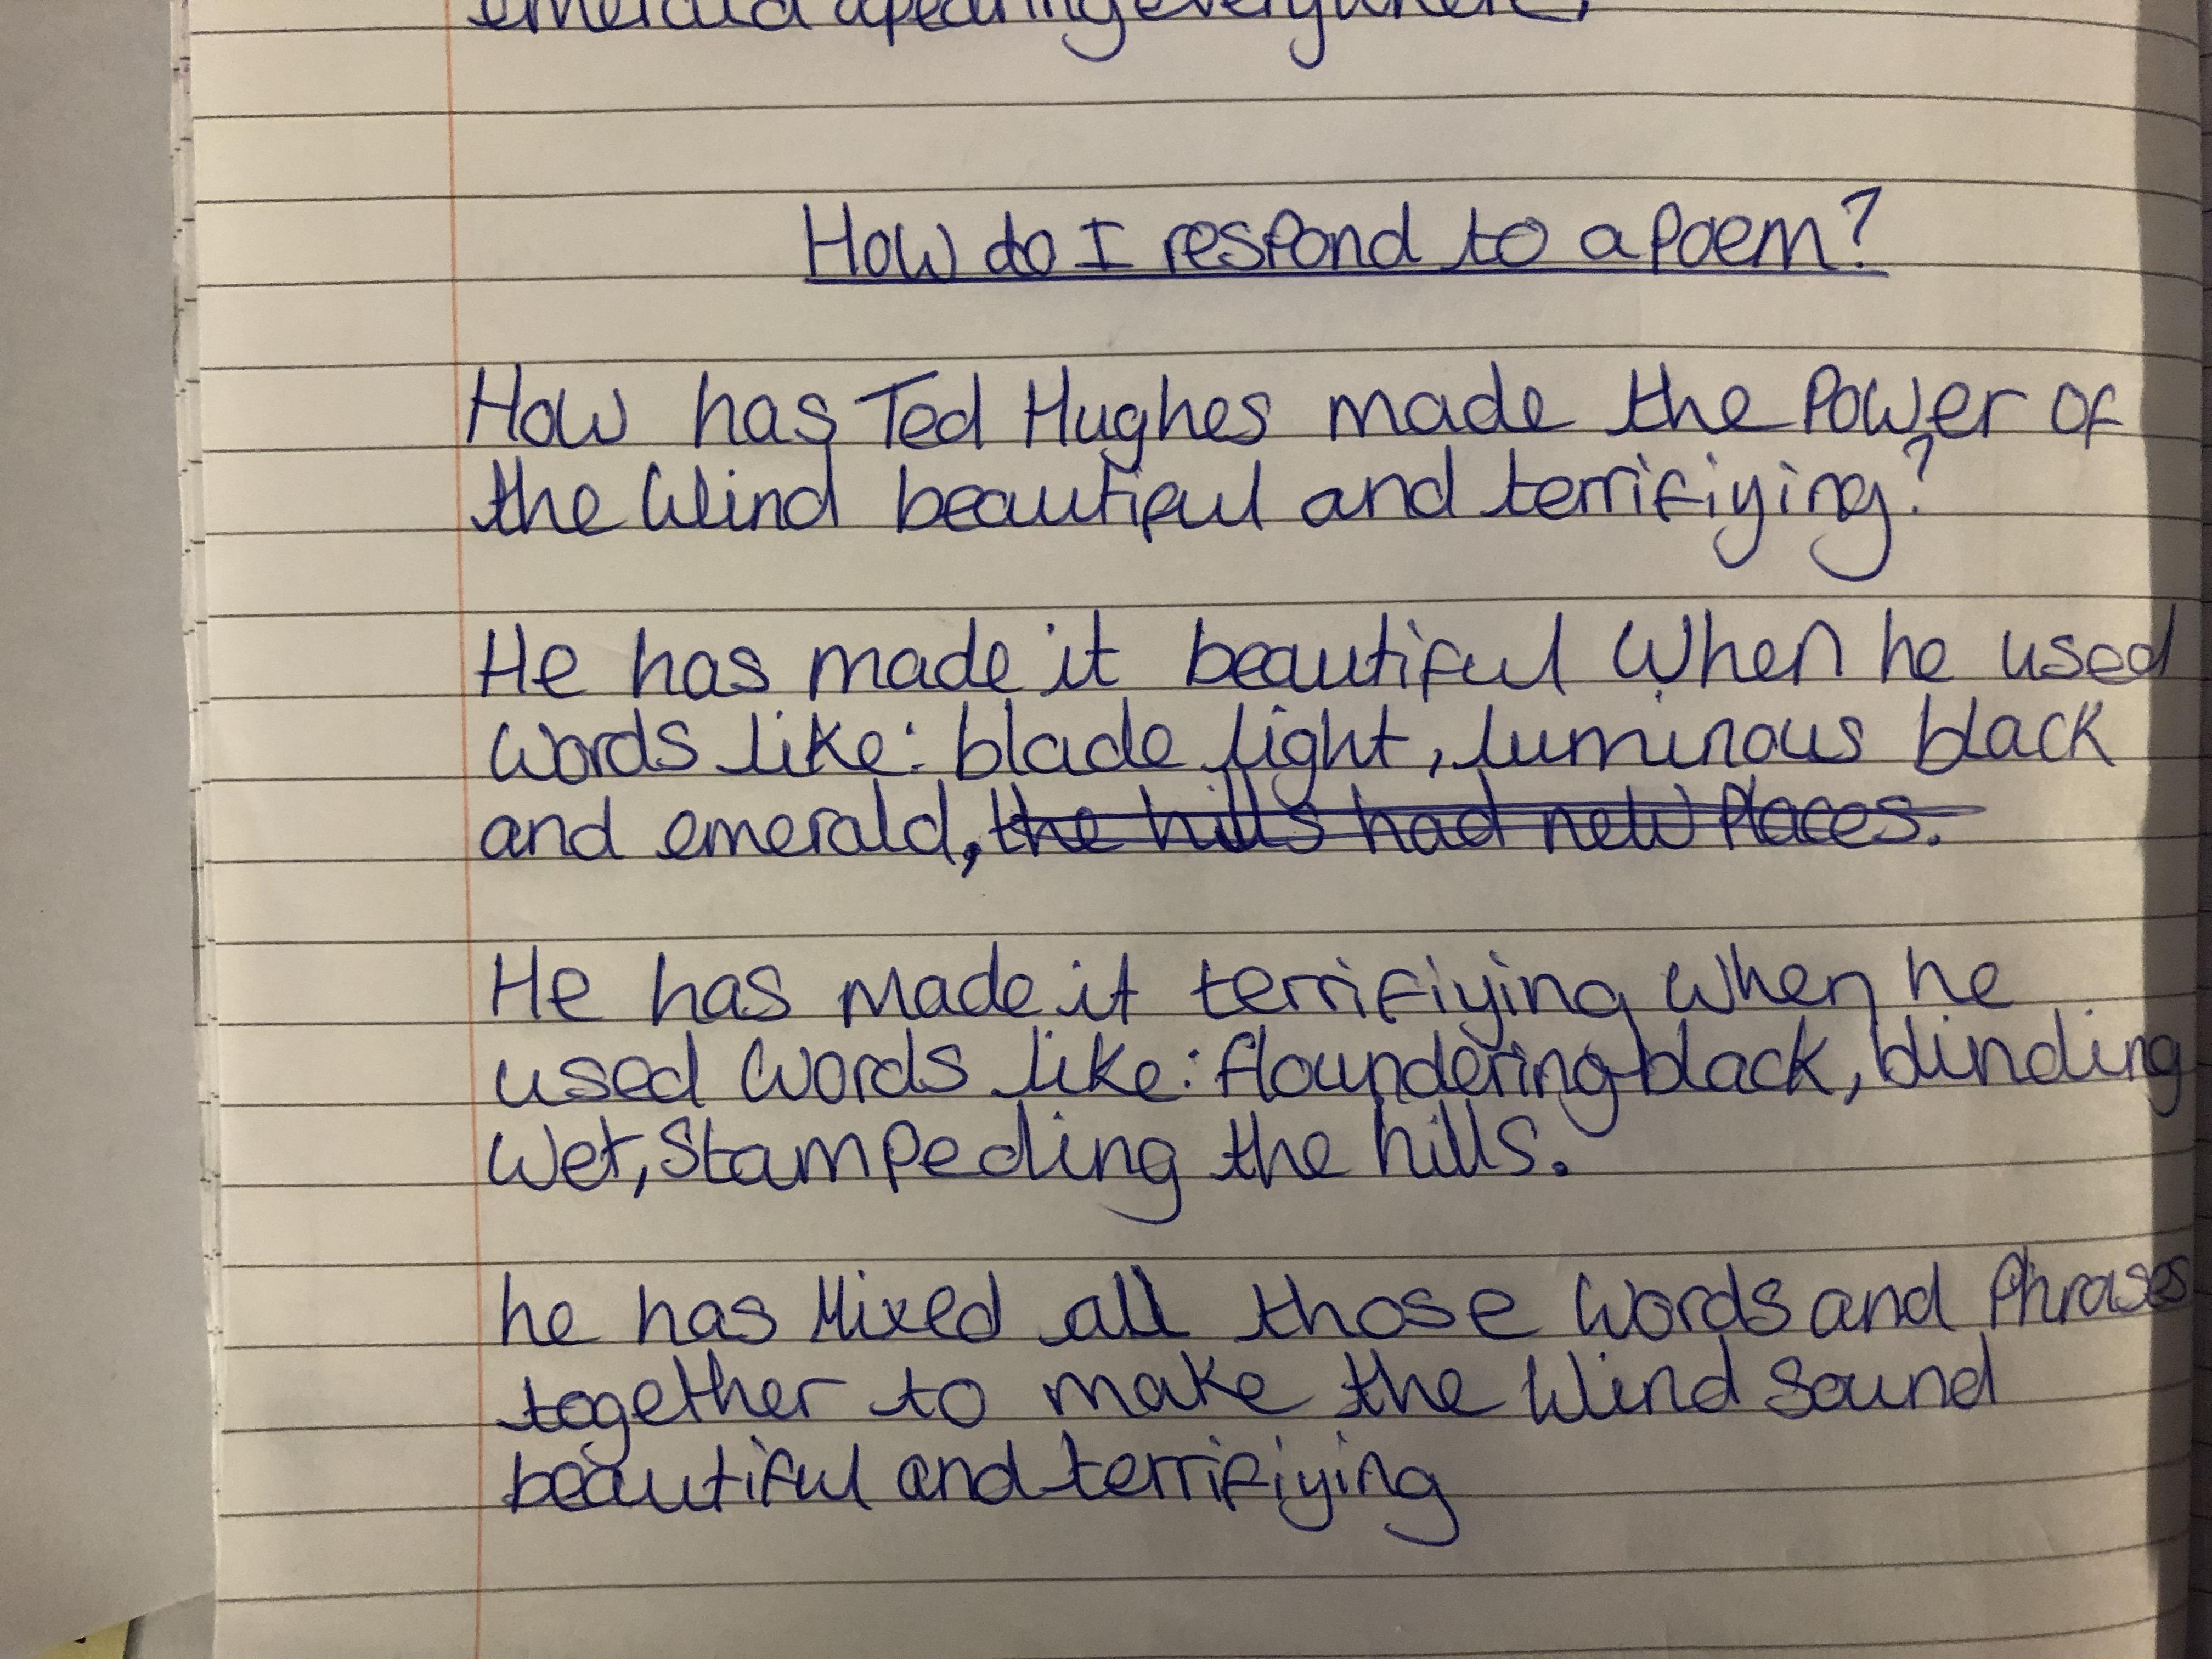 emerald apearing everywhere,
How do I respond to a poem?
How has Ted Hughes made the Power of
the Wind beautiful and terrifiying?
He has made it beautiful When he used
Words like: blade light, luminous black
and emerald, the hills had new Places.
He has made it terrifiying When he
used Words like: floundering black, blinding
Wet, Stampeding the hills.
he has Mixed all those Words and Phrases
together to make the Wind Sound
beautiful and terrifiying